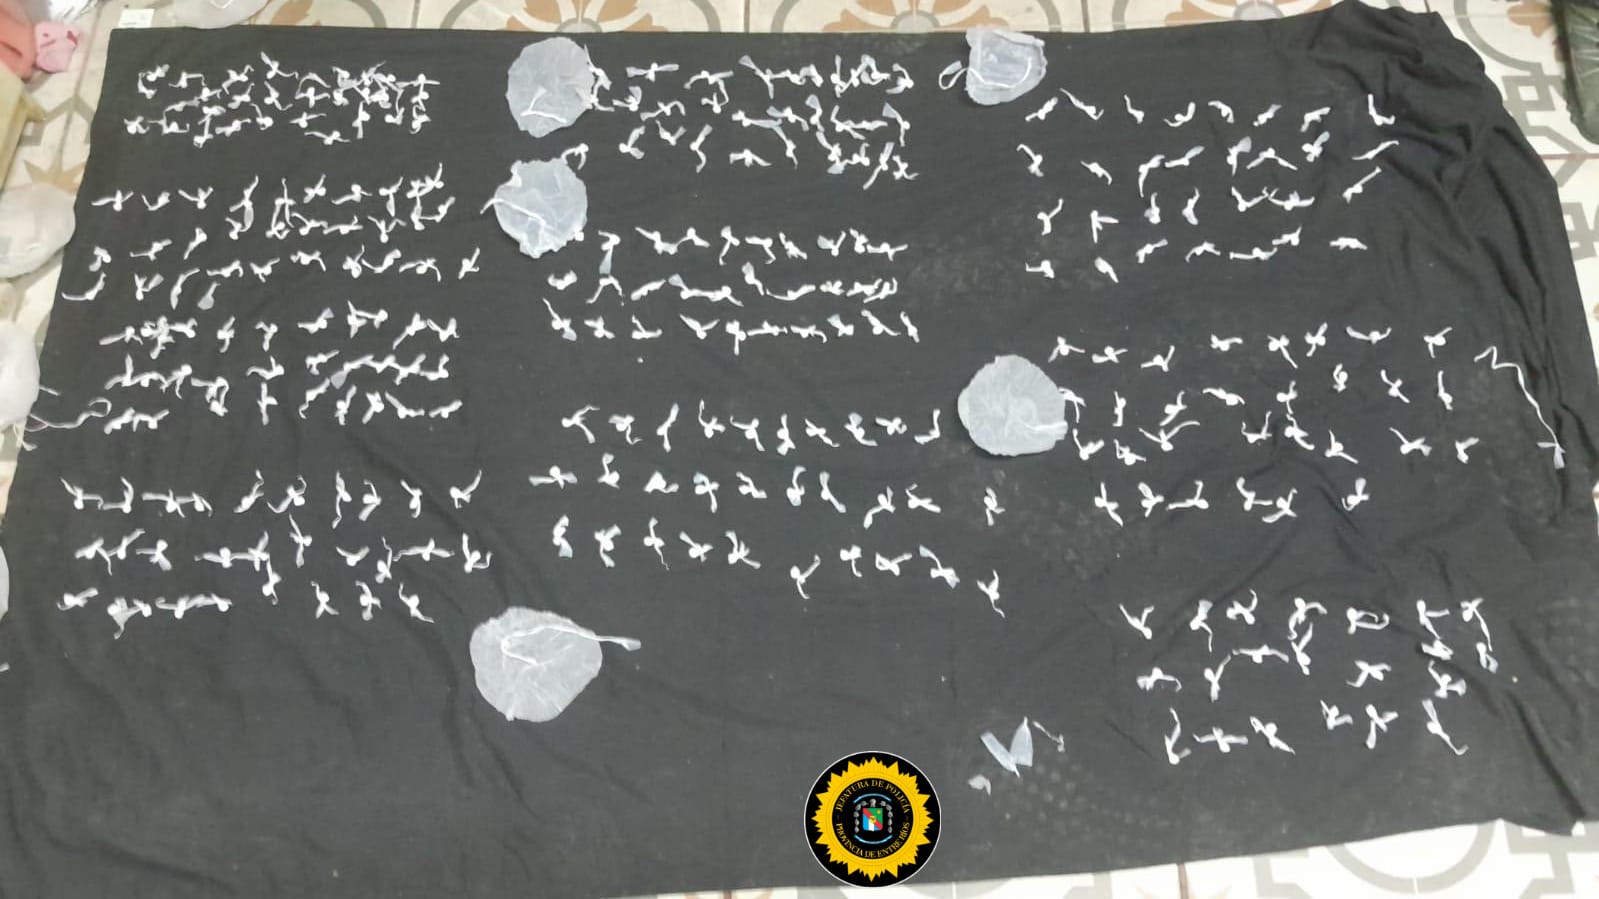 JEFATURA DE POLICÍA
PROVINCIA DE ENTRE RÍOS